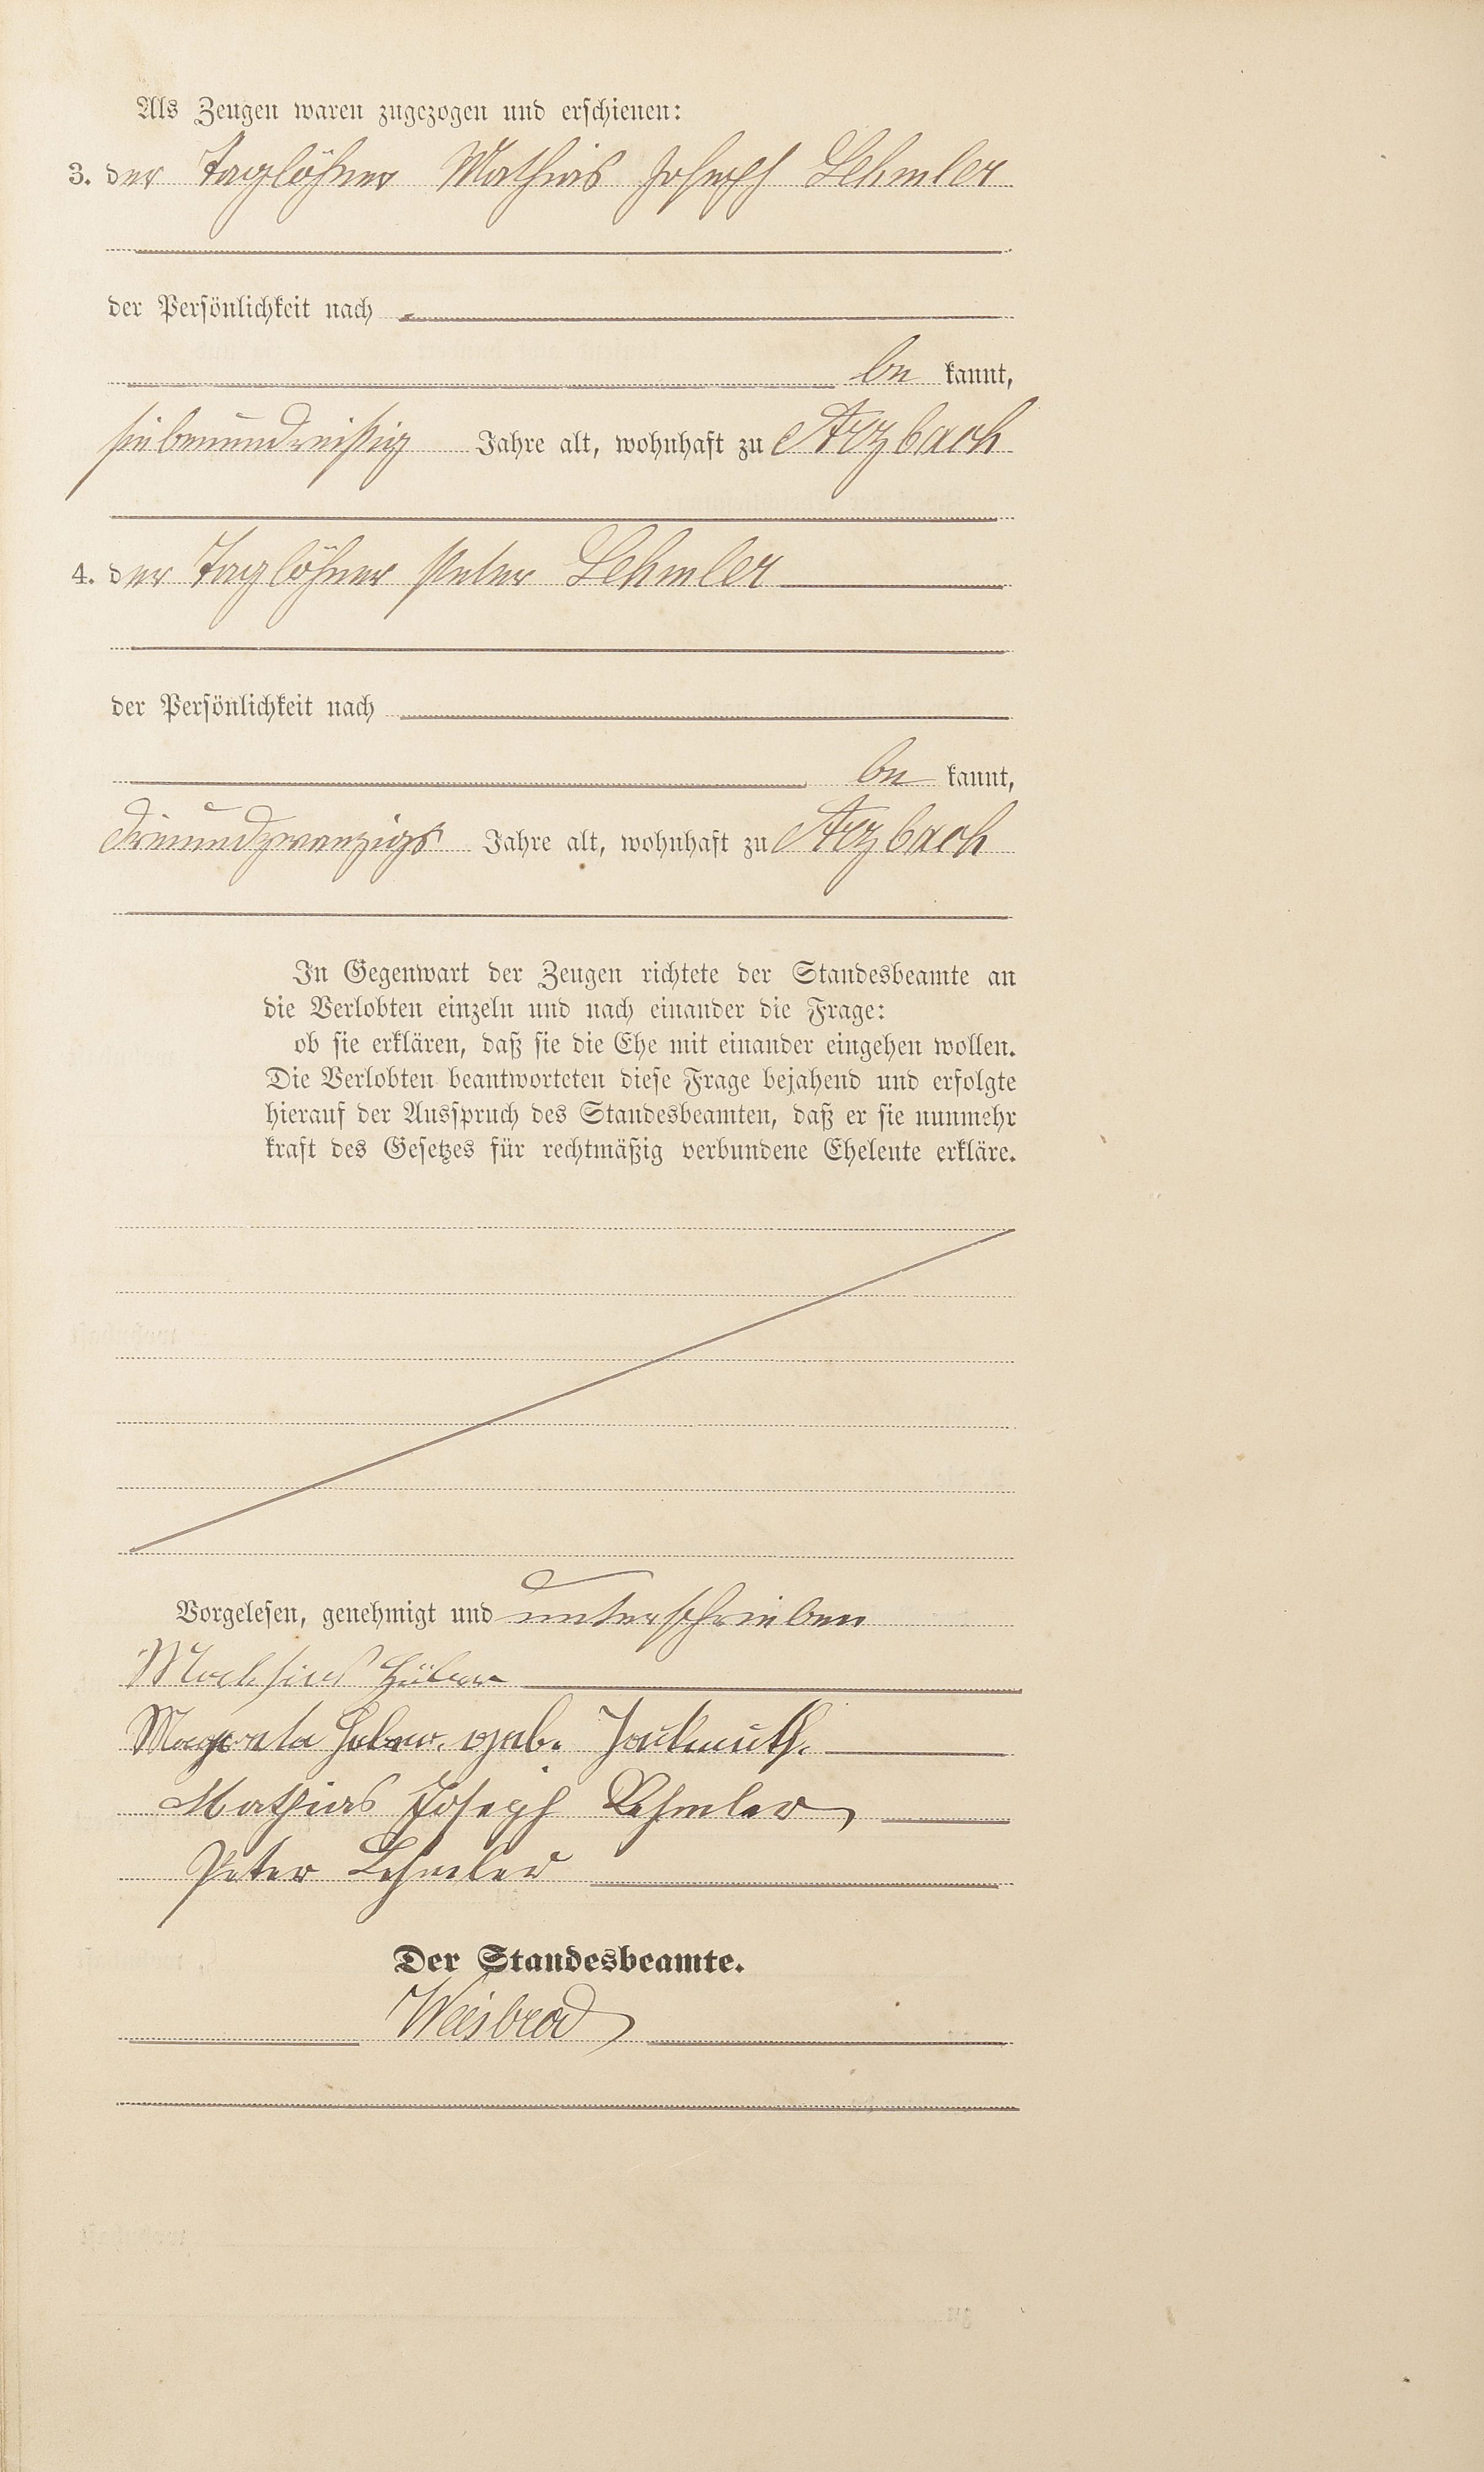 Als Zeugen waren zugezogen und erschienen:
3. der Taglöhner Mathias Joseph Lehmler
der Persönlichkeit nach
be kannt,
siebenunddreißig Jahre alt, wohnhaft zu Arzbach
4. der Taglöhner Peter Lehmler
der Persönlichkeit nach
be kannt,
dreiundzwanzig Jahre alt, wohnhaft zu Arzbach
In Gegenwart der Zeugen richtete der Standesbeamte an
die Verlobten einzeln und nach einander die Frage:
ob sie erklären, daß sie die Ehe mit einander eingehen wollen.
Die Verlobten beantworteten diese Frage bejahend und erfolgte
hierauf der Ausspruch des Standesbeamten, daß er sie nunmehr
kraft des Gesetzes für rechtmäßig verbundene Eheleute erkläre.
Vorgelesen, genehmigt und unterschrieben
Mathias
geb.
Mathias Joseph Lehmler
Peter Lehmler
Der Standesbeamte.
Weisbrod